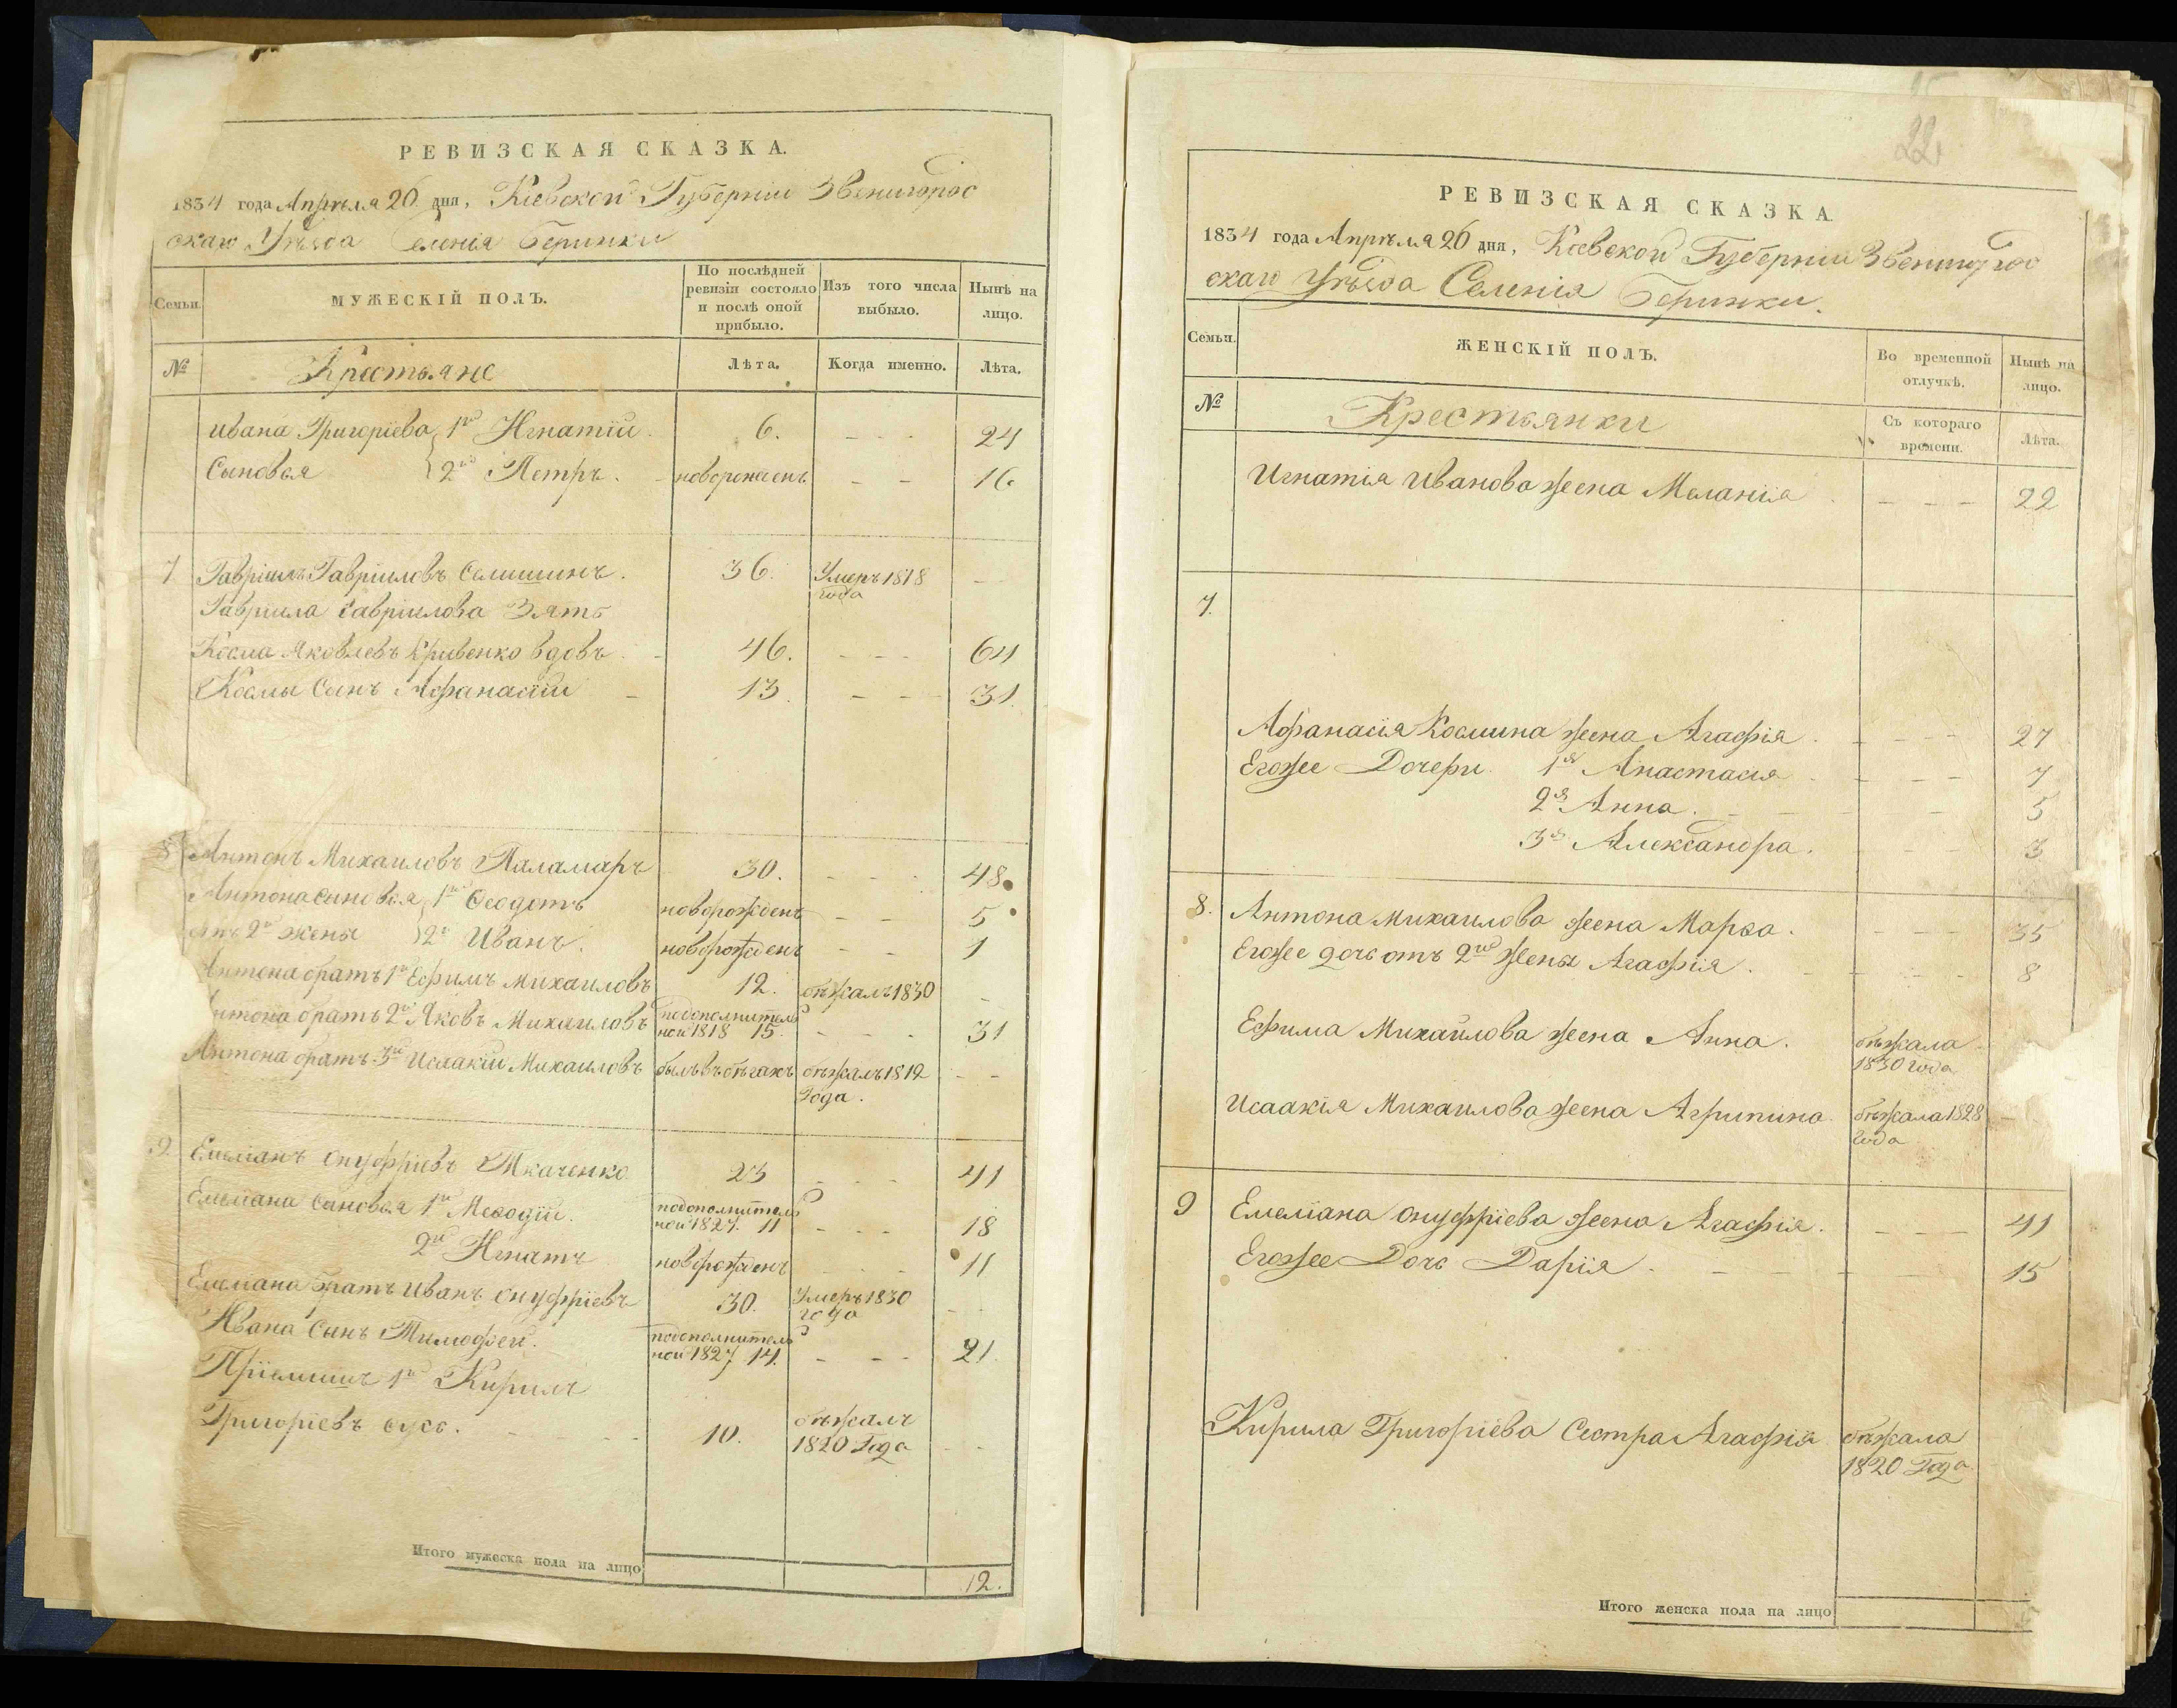 РЕВИЗСКАЯ СКАЗКА.
1834 года Апрѣля 26 дня, Кіевской Губерніи Звенигород
скаго Уѣзда Селенія Беринки
Семьи.
МУЖЕСКІЙ ПОЛЪ.
По послѣдней ревизіи состояло и послѣ оной прибыло.
Изъ того числа выбыло.
Нынѣ на лицо.
№
Крестьяне
Лѣта.
Когда именно.
Лѣта.
Ивана Григоріева 1й Игнатій 6. - - - 24
Сыновья 2й Петръ. новорожденъ - - 16
7 Гавріилъ Гавріиловъ Селишинъ. 36. Умеръ 1818 года -
Гавріила Гавріилова Зять
Косма Яковлевъ Кривенко вдовъ 46. - - - 64
Космы Сынъ Афанасій 13. - - - 31.
8 Антонъ Михаиловъ Паламаръ 30. - - - 48
Антона сыновья 1й Ѳеодотъ новорожденъ - - 5
отъ 2й жены 2й Иванъ. новорожденъ - - 1
Антона братъ 1й Ефимъ Михаиловъ 12. бѣжалъ 1830 -
Антона братъ 2й Яковъ Михаиловъ подополнитель ной 1818 15. - - - 31
Антона братъ 3й Исаакій Михаиловъ былъ въ бѣгахъ бѣжалъ 1812 Года. - -
9. Емеліанъ Онуфріевъ Ткаченко 23 - - - 41
Емеліана Сыновья 1й Меѳодій. подополнитель ной 1827. 11 - - - 18
2й Игнатъ новорожденъ - - - 11
Емеліана братъ Иванъ Онуфріевъ 30. Умеръ 1830 года - -
Ивана Сынъ Тимофей. подополнитель ной 1827 14. - - - 21.
Пріемышъ 1й Кирилъ
Григоріевъ Сусь. 10. бѣжалъ 1820 Года - -
Итого мужеска пола на лицо 12.
22
РЕВИЗСКАЯ СКАЗКА.
1834 года Апрѣля 26 дня, Кіевской Губерніи Звенигород
скаго Уѣзда Селенія Беринки.
Семьи.
ЖЕНСКІЙ ПОЛЪ.
Во временной отлучкѣ.
Нынѣ на лицо.
№
Крестьянки
Съ котораго времени.
Лѣта.
Игнатія Иванова жена Меланія - - - 22
7.
Афанасія Космина жена Агафія. - - - 27
Егожее Дочери 1я Анастасія - - - 7
2я Анна. - - - 5
3я Александра. - - 3
8. Антона Михаилова жена Марѳа. - - - 35
Егожее дочь отъ 2й жены Агафія. - - - 8
Ефима Михайлова жена Анна. бѣжала 1830 года
Исаакія Михаилова жена Агрипина бѣжала 1828 года -
9 Емеліана Онуфріева жена Агафія. - - - 41
Егожее Дочь Дарія. - - - 15
Кирила Григоріева Сестра Агафія бѣжала 1820 Года
Итого женска пола на лицо